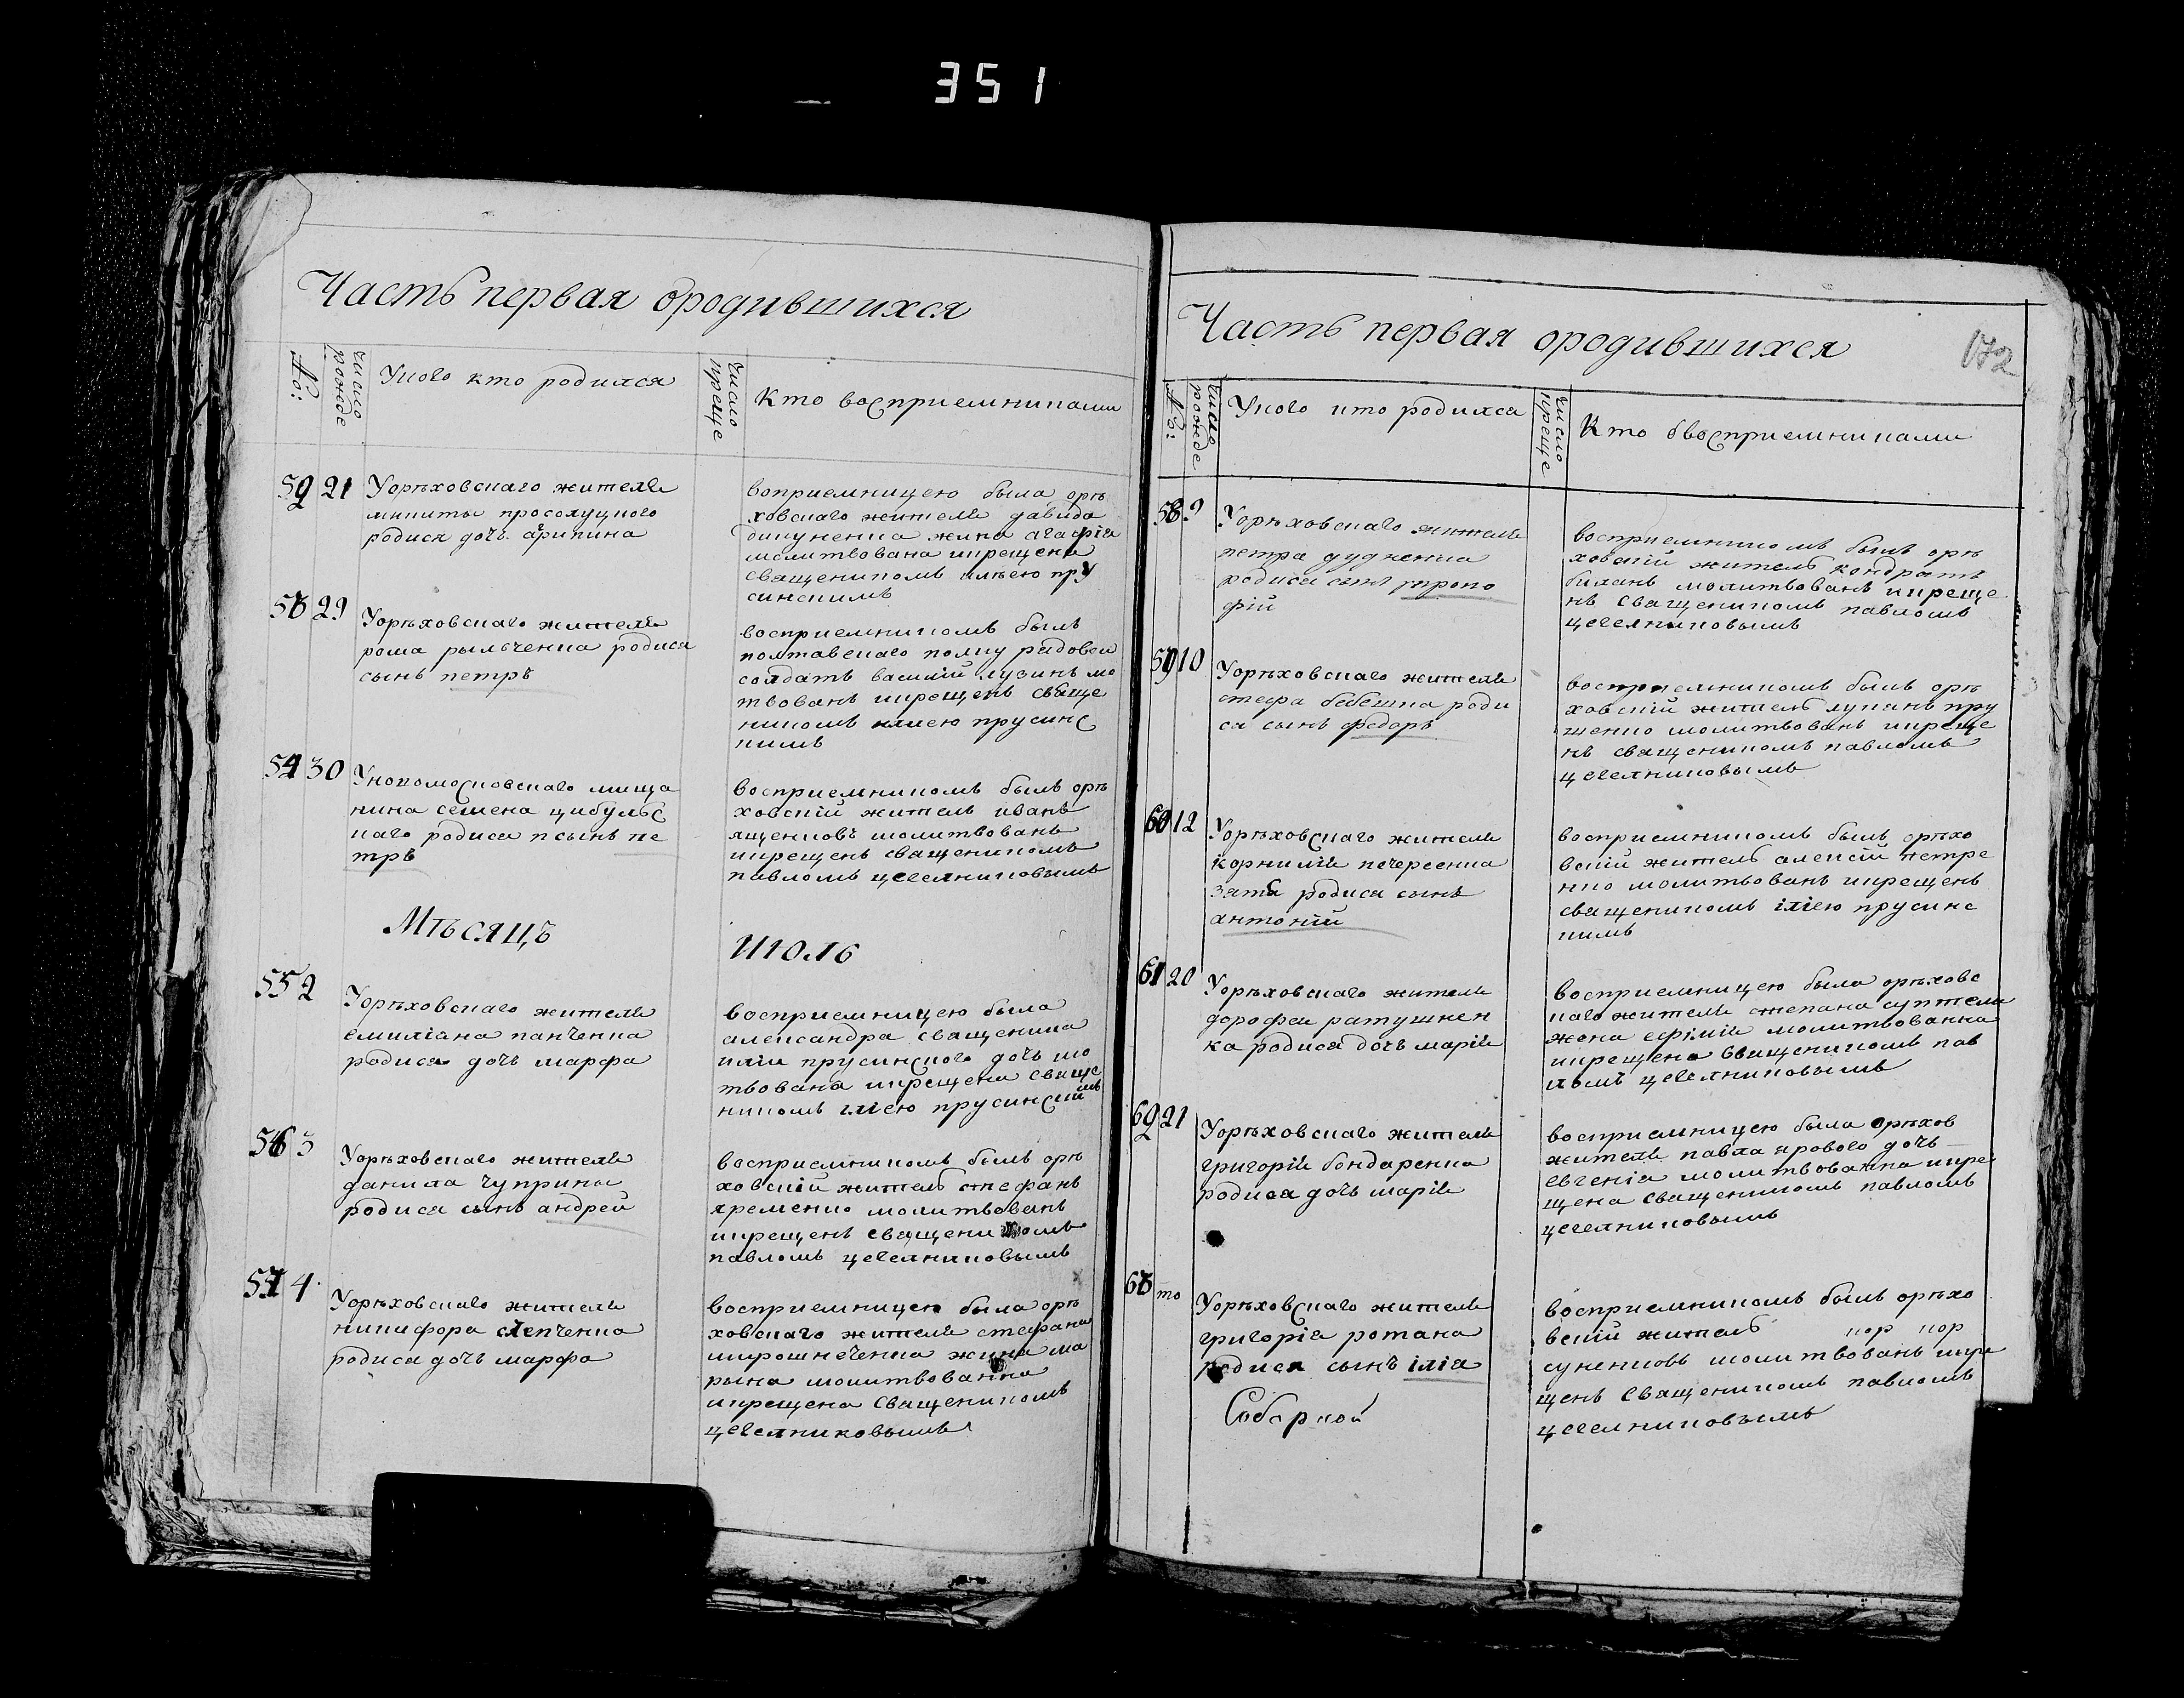 351
Часть первая ородившихся
№:
число рожде
Укого кто родился
число креще
Кто восприемниками
52 21 Уорѣховскаго жителя
микиты просолуцкого
родися дочь арипина
воприемницею была орѣ
ховскаго жителя давида
жина агафія
молитвована икрещена
священикомъ илѣею пру
синскимъ
53 29 Уорѣховскаго жителя
рома рыльченка родися
сынъ петръ
восприемникомъ былъ
полтавскаго полку рядовои
солдатъ василій лузинъ мо
твованъ икрещенъ свяще
никомъ илиею прусинс
кимъ
54 30 Уновомосковскаго мища
нина семена цибульс
каго родися псынъ пе
тръ
восприемникомъ былъ орѣ
ховскій житель иванъ
ященковъ молитвованъ
икрещенъ священикомъ
павломъ цегелниковымъ
Мѣсяцъ
Июль
55 2 Уорѣховскаго жителя
емиліяна панченка
родися дочь марфа
восприемницею была
александра священика
иліи прусинского дочь мо
твована икрещена свяще
никомъ іліею прусинскимъ
56 3 Уорѣховскаго жителя
данила чуприны
родися сынъ андрей
восприемникомъ былъ орѣ
ховскій житель стефанъ
яременко молитвованъ
икрещенъ священикомъ
павломъ цегелниковымъ
57 4 Уорѣховскаго жителя
никифора слепченка
родися дочь марфа
восприемницею была орѣ
ховскаго жителя стефана
мирошнеченка жина ма
рына молитвованна
икрещена священикомъ
цегелниковымъ
Часть первая ородившихся
172
№:
число рожде
Укого кто родился
число креще
Кто бвосприемниками
58 9 Уорѣховскаго жителя
петра дудченка
родися сынъ проко
фій
восприемникомъ былъ орѣ
ховскій житель кондратъ
биланъ молитвованъ икреще
нъ священикомъ павломъ
цегелниковымъ
59 10 Уорѣховскаго жителя
стефа бебешка роди
ся сынъ федоръ
восприемникомъ былъ орѣ
ховскій житель лукянъ гру
шенко молитвованъ икреще
нъ священикомъ павломъ
цегелниковымъ
60 12 Уорѣховскаго жителя
корнилія печереенка
зятя родися сынъ
антоній
восприемникомъ былъ орѣхо
вскій житель алексій петре
нко молитвованъ икрещенъ
священикомъ іліею прусинс
кимъ
61 20 Уорѣховскаго жителя
дорофеи ратушнен
ка родися дочь марія
восприемницею была орѣховс
каго жителя степана суптеля
жена ефімія молитвованна
икрещена священикомъ пав
ломъ цегелниковымъ
62 21 Уорѣховскаго жителя
григорія бондаренка
родися дочь марія
восприемницею была орѣхов
жителя павла ярового дочь
евгенія молитвованна икре
щена священикомъ павломъ
цегелниковымъ
63 то Уорѣховскаго жителя
григорія ротана
родися сынъ ілія
восприемникомъ былъ орѣхо
вскій житель кор кор
сукенковъ молитвованъ икре
щенъ священикомъ павломъ
цегелниковымъ
Соборной